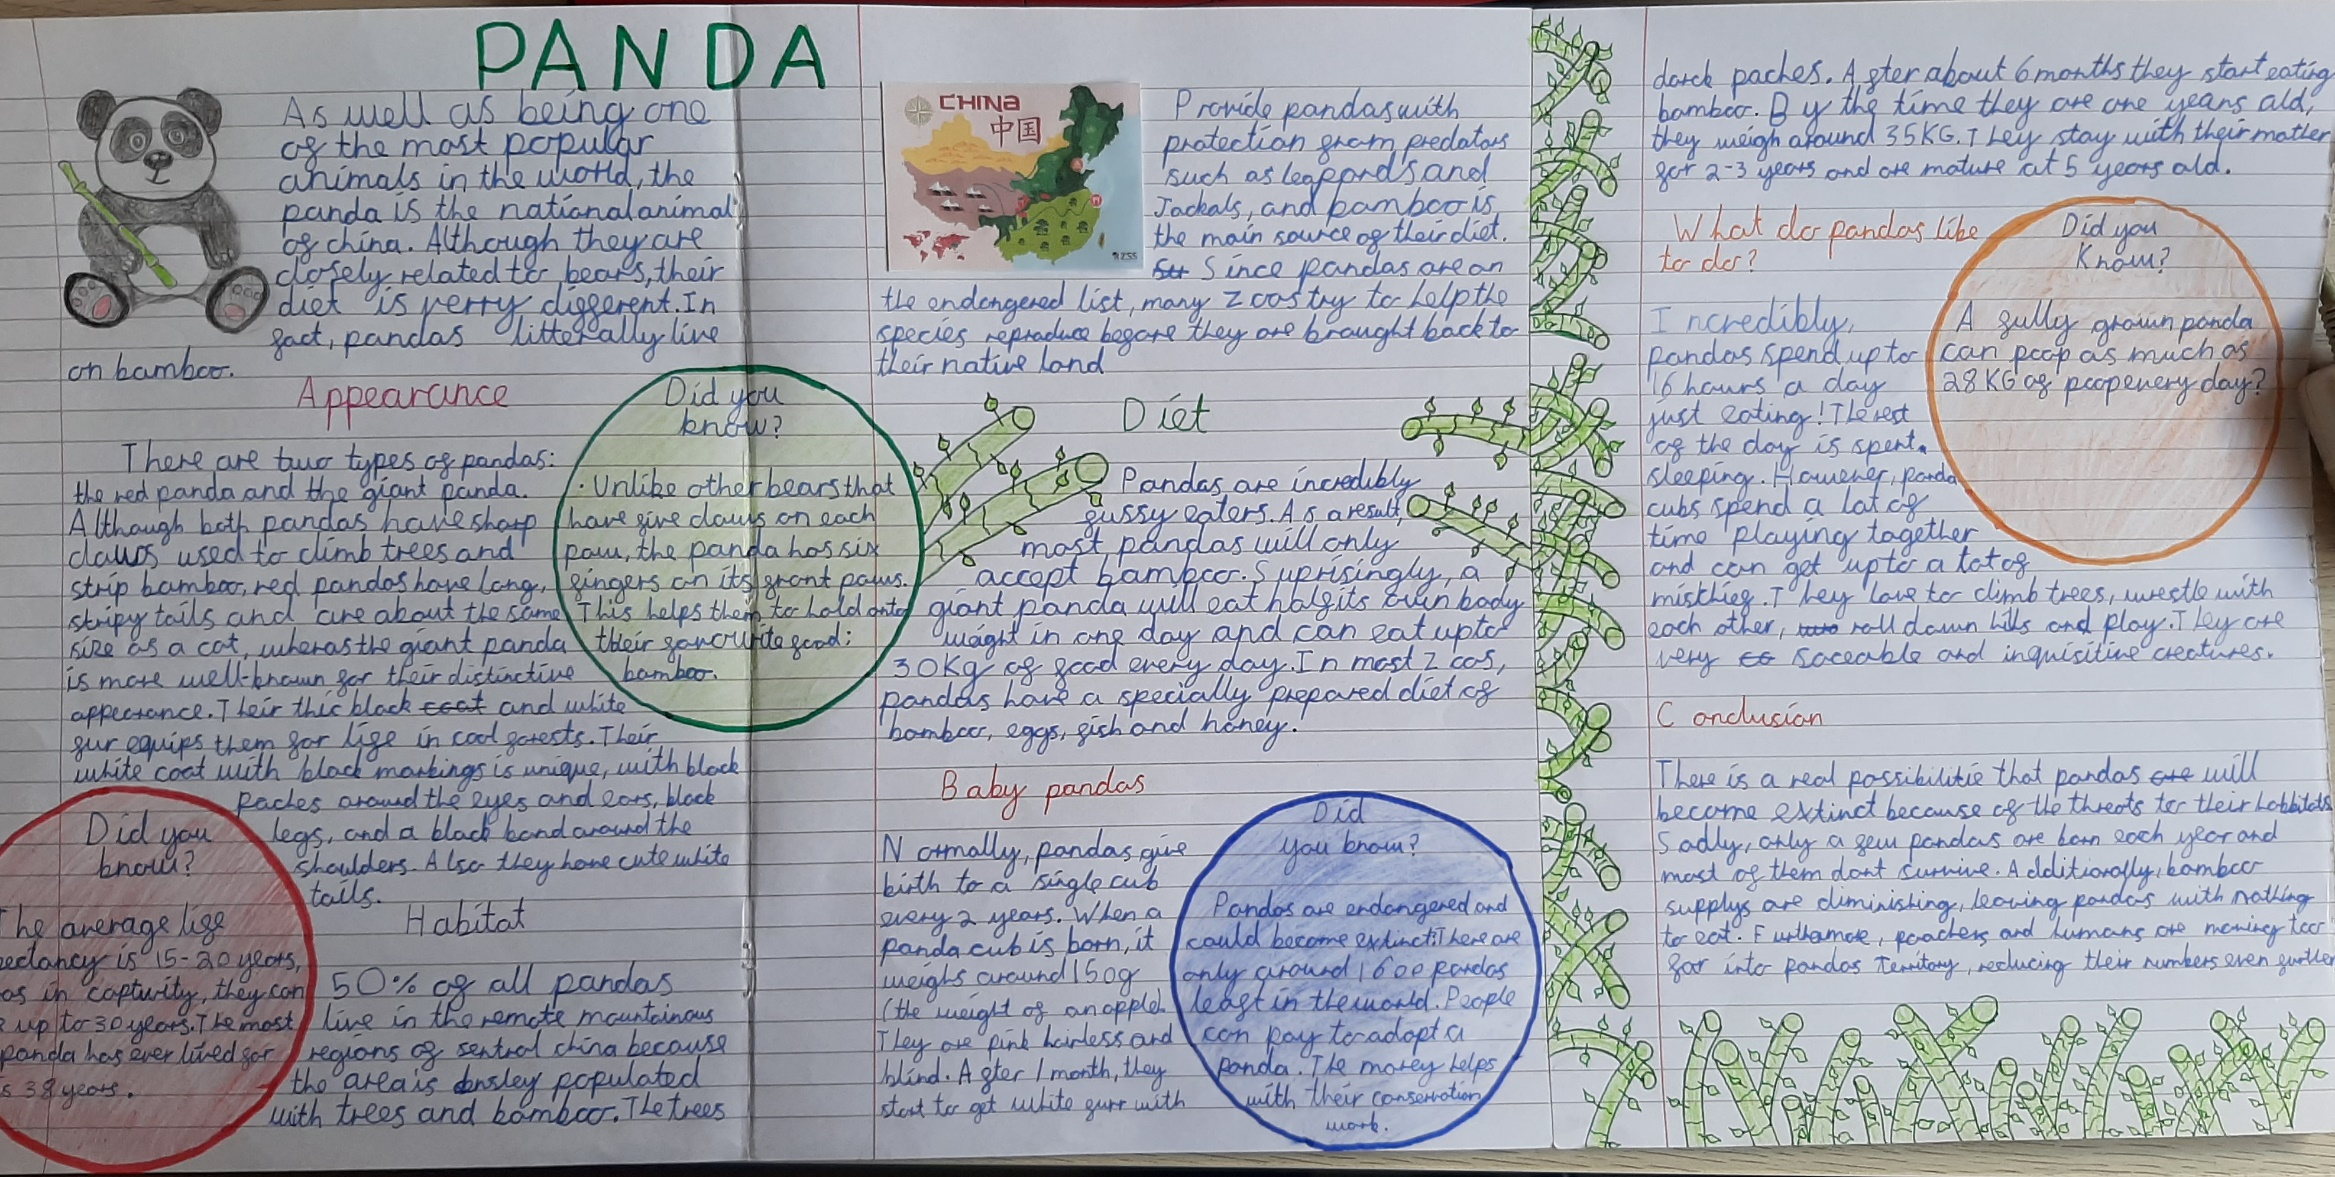 PANDA
As well as being one
of the most popular
animals in the world, the
panda is the national animal
of china. Although they are
closely related to bears, their
diet is verry different. In
fact, pandas litterally live
on bamboo.
Appearance
There are two types of pandas:
the red panda and the giant panda.
Although both pandas have sharp
claws used to climb trees and
strip bamboo, red pandas have long,
stripy tails and are about the same
size as a cat, wheras the giant panda
is more well-known for their distinctive
appearance. Their thic black coat and white
fur equips them for life in cool forests. Their
white coat with black markings is unique, with black
paches around the eyes and ears, black
legs, and a black band around the
shoulders. Also they have cute white
tails.
Did you
know?
Unlike other bears that
have five claws on each
paw, the panda has six
fingers on its front paws.
This helps them to hold onto
their favourite food:
bamboo.
Did you
know?
The average life
ectancy is 15-20 years,
as in captivity, they can
up to 30 years. The most
panda has ever lived for
is 38 years.
Habitat
50% of all pandas
live in the remote mountainous
regions of sentral china because
the area is densley populated
with trees and bamboo. The trees
CHINA
中国
Provide pandas with
protection from predators
such as leappords and
Jackals, and bamboo is
the main source of their diet.
Since pandas are on
the endangered list, many zoos try to help the
species reproduce before they are brought back to
their native land
Diet
Pandas are incredibly
fussy eaters. As a result,
most pandas will only
accept bamboo. Suprisingly, a
giant panda will eat half its own body
weight in one day and can eat up to
30Kg of food every day. In most zoos,
pandas have a specially prepared diet of
bamboo, eggs, fish and honey.
Baby pandas
Normally, pandas give
birth to a single cub
every 2 years. When a
panda cub is born, it
weighs around 150g
(the weight of an apple).
They are pink hairless and
blind. After 1 month, they
start to get white furr with
Did
you know?
Pandas are endangered and
could become extinct! There are
only around 1600 pandas
leaft in the world. People
can pay to adopt a
panda. The money helps
with their conservation
work.
darck paches. After about 6 months they start eating
bamboo. By the time they are one years old,
they weigh around 35KG. They stay with their mother
for 2-3 years and are mature at 5 years old.
What do pandas like
to do?
Incredibly,
pandas spend up to
16 hours a day
just eating! The rest
of the day is spent
sleeping. However, panda
cubs spend a lot of
time playing together
and can get up to a lot of
misthief. They love to climb trees, wrestle with
each other, roll down hills and play. They are
very soceable and inquisitive creatures.
Did you
Know?
A fully grown panda
can poop as much as
28KG of poop every day?
Conclusion
There is a real possibilitie that pandas are will
become extinct because of the threats to their habbitats
Sadly, only a few pandas are born each year and
most of them dont survive. Additionally, bamboo
supplys are diminishing, leaving pandas with nothing
to eat. Furthamore, poachers and humans are moving too
far into pandas Territory, reducing their numbers even further